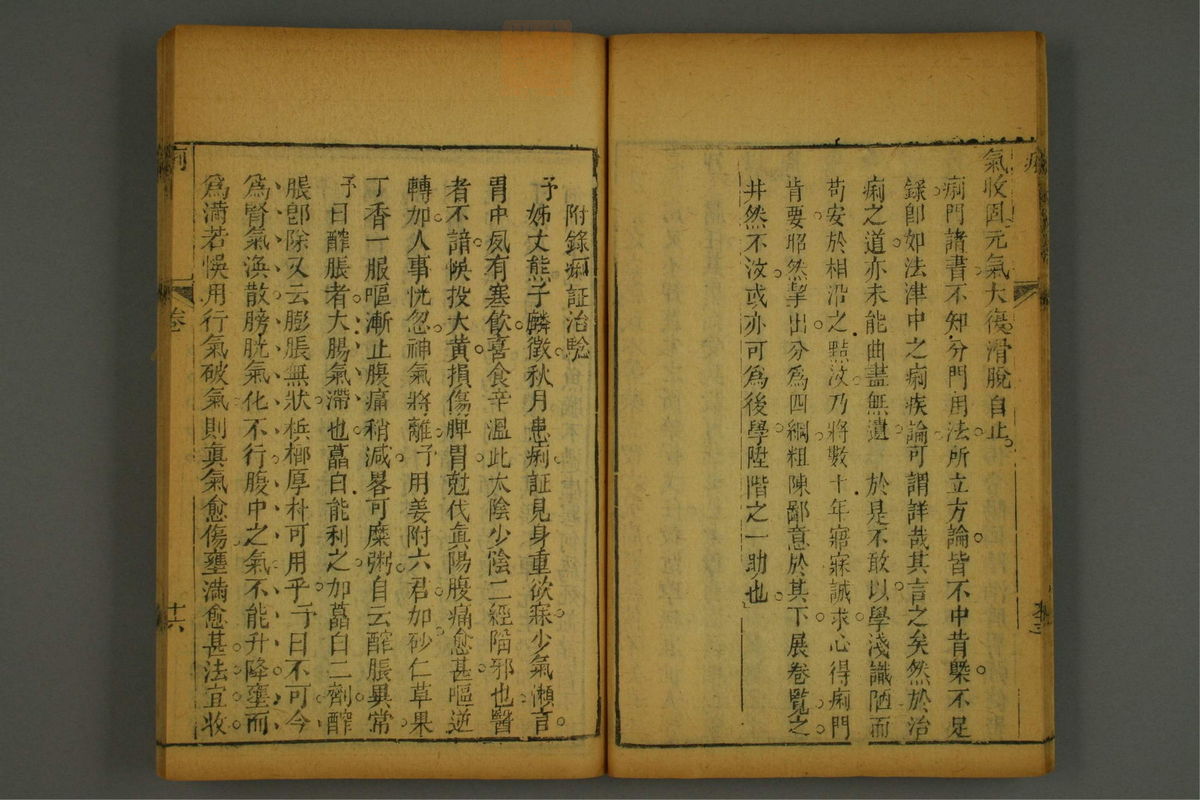 氣收固元氣大復滑脫自止
痢門諸書不知分門用法所立方論皆不中肯槩不足
錄卽如法津中之痢疾論可謂詳哉其言之矣然於治
痢之道亦未能曲盡無遺 於是不敢以學淺識陋而
苟安於相沿之黯汶乃將數十年寤寐誠求心得痢門
肯要昭然揭出分為四綱粗陳鄙意於其下展卷覽之
井然不汶或亦可為後學陞階之一助也
附錄痢証治驗
予姊丈熊子麟徵秋月患痢証見身重欲寐少氣懶言
胃中夙有寒飲喜食辛溫此太陰少陰二經陷邪也醫
者不諳悞投大黃損傷脾胃尅伐眞陽腹痛愈甚嘔逆
轉加人事恍忽神氣將離予用姜附六君加砂仁草果
丁香一服嘔漸止腹痛稍減畧可糜粥自云醡脹異常
予曰醡脹者大腸氣滯也藠白能利之加藠白二劑醡
脹卽除又云膨脹無狀梹榔厚朴可用乎予曰不可今
為腎氣渙散膀胱氣化不行腹中之氣不能升降壅而
為滿若悞用行氣破氣則眞氣愈傷壅滿愈甚法宜收
卷
十六